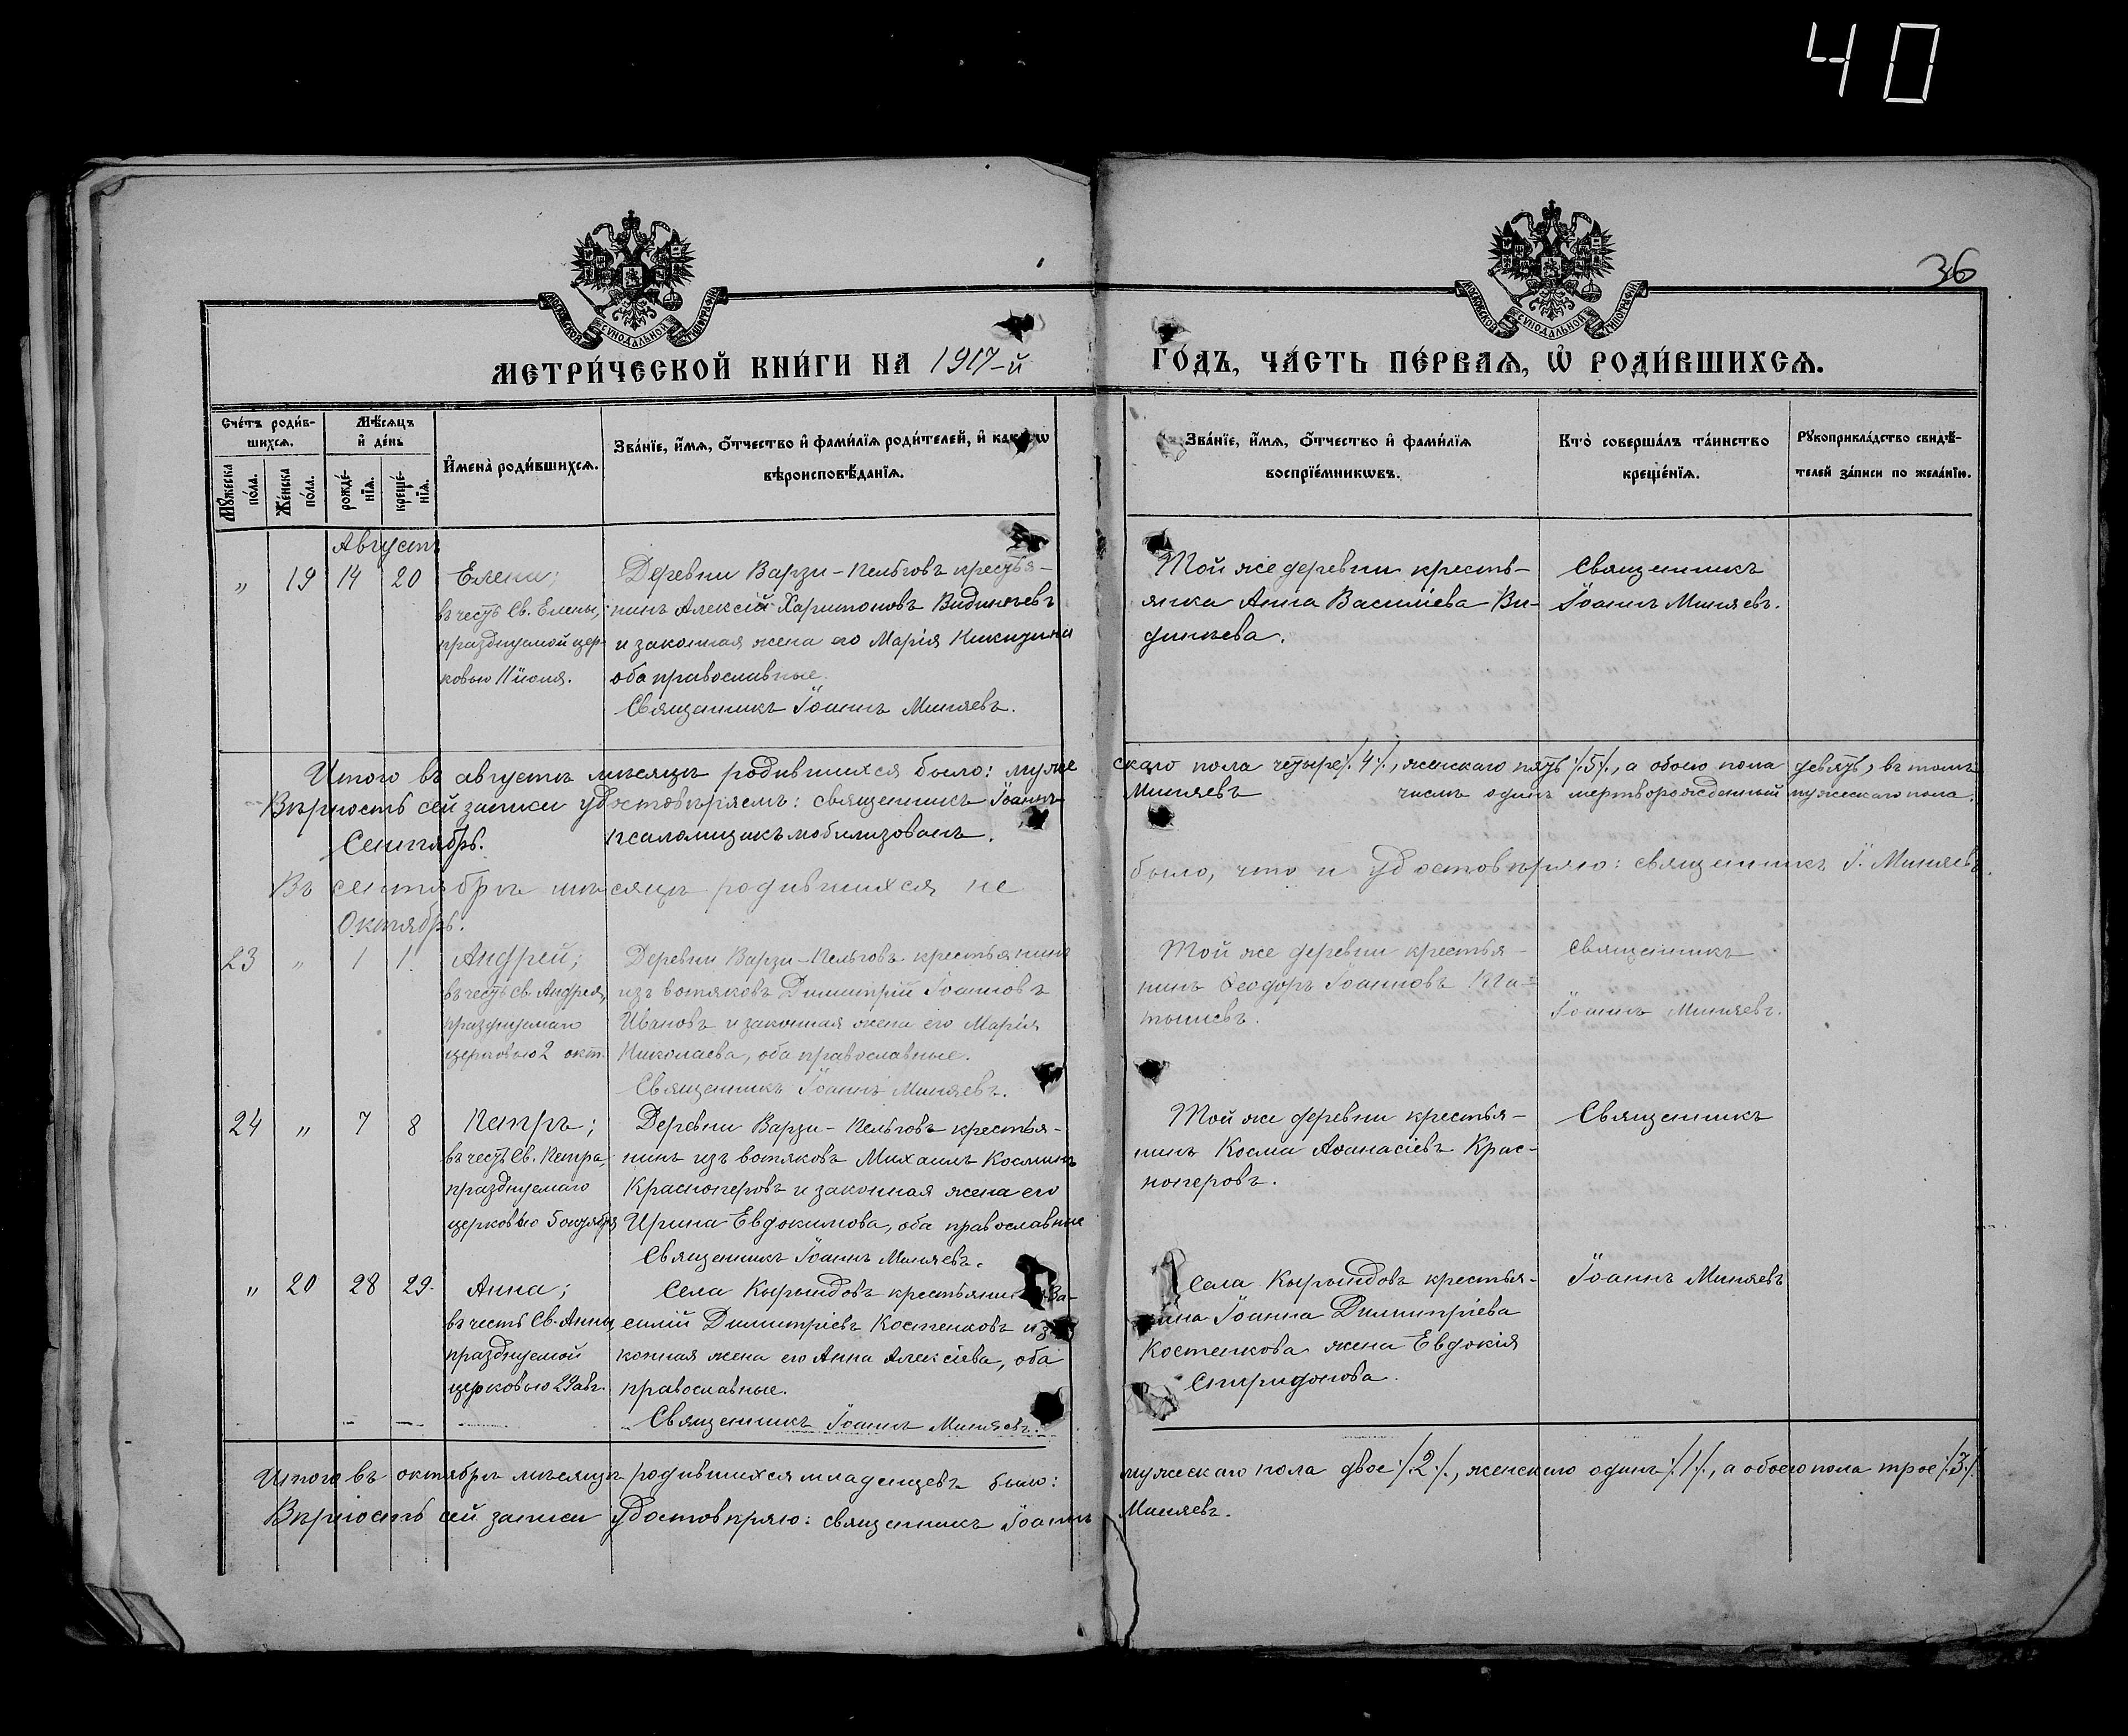 40
36
МОСКОВСКОЙ СѴНОДАЛЬНОЙ ТИПОГРАФІИ
МОСКОВСКОЙ СѴНОДАЛЬНОЙ ТИПОГРАФІИ
МЕТРИ́ЧЕСКОЙ КНИ́ГИ НА 1917-й
ГО́ДЪ, ЧА́СТЬ ПЕ́РВАѦ, Ѡ҆ РОДИ́ВШИХСѦ.
Сче́тъ роди́в-
шихсѧ.
Мѣ́сѧцъ
и҆ де́нь
Мꙋ́жеска по́ла.
Же́нска по́ла.
рожде́-нїѧ.
креще́-нїѧ.
И҆мена̀ роди́вшихсѧ.
Зва́нїе, и҆́мѧ, ѻ҆́тчество и҆ фами́лїѧ роди́телей, и҆ какѡ́гѡ
вѣроисповѣ́данїѧ.
Зва́нїе, и҆́мѧ, ѻ҆́тчество и҆ фами́лїѧ
воспрїе́мникѡвъ.
Кто̀ соверша́лъ та́инство
креще́нїѧ.
Рꙋкоприкла́дство свидѣ́-
телей за́писи по жела́нїю.
Августъ
„ 19 14 20 Елена;
въ честь Св. Елены,
празднуемой цер-
ковью 11 іюня.
Деревни Варзи-Пельговъ крестья-
нинъ Алексій Харитоновъ Видинеевъ
и законная жена его Марія Никитина
оба православные.
Священникъ Іоаннъ Миняевъ.
Той же деревни кресть-
янка Анна Васильева Ви-
динеева.
Священникъ
Іоаннъ Миняевъ.
Итого въ августѣ мѣсяцѣ родившихся было: муже
скаго пола четыре /.4./, женскаго пять /.5./, а обоего пола девять, въ томъ
Вѣрность сей записи удостовѣряемъ: священникъ Іоаннъ
Миняевъ числѣ одинъ мертворожденный мужескаго пола.
Сентябрь. псаломщикъ мобилизованъ.
Въ сентябрѣ мѣсяцѣ родившихся не
было, что и удостовѣряю: священникъ І. Миняевъ.
Октябрь.
23 „ 1 1. Андрей;
въ честь Св. Андрея,
празднуемаго
церковью 2 окт.
Деревни Варзи-Пельговъ крестьянинъ
изъ вотяковъ Димитрій Іоанновъ
Ивановъ и законная жена его Марія
Николаева, оба православные.
Священникъ Іоаннъ Миняевъ.
Той же деревни крестья-
нинъ Ѳеодоръ Іоанновъ
Священникъ
Іоаннъ Миняевъ.
24 „ 7 8 Петръ;
въ честь Св. Петра,
празднуемаго
церковью 5 октября
Деревни Варзи-Пельговъ крестья-
нинъ изъ вотяковъ Михаилъ Косминъ
Красноперовъ и законная жена его
Ирина Евдокимова, оба православные
Священникъ Іоаннъ Миняевъ.
Той же деревни крестья-
нинъ Косма Аѳанасіевъ Крас-
ноперовъ.
Священникъ
„ 20 28 29. Анна;
въ честь Св. Анны,
празднуемой
церковью 29 авг.
Села Кырындовъ крестьянинъ Ва-
силій Димитріевъ Костенковъ и за
конная жена его Анна Алексіева, оба
православные.
Священникъ Іоаннъ Миняевъ.
Села Кырындовъ крестья-
нина Іоанна Димитріева
Костенкова жена Евдокія
Спиридонова.
Іоаннъ Миняевъ
Итого въ октябрѣ мѣсяцѣ родившихся младенцевъ было:
мужескаго пола двое /.2./, женскаго одинъ /.1./, а обоего пола трое /.3./
Вѣрность сей записи удостовѣряю: священникъ Іоаннъ
Миняевъ.